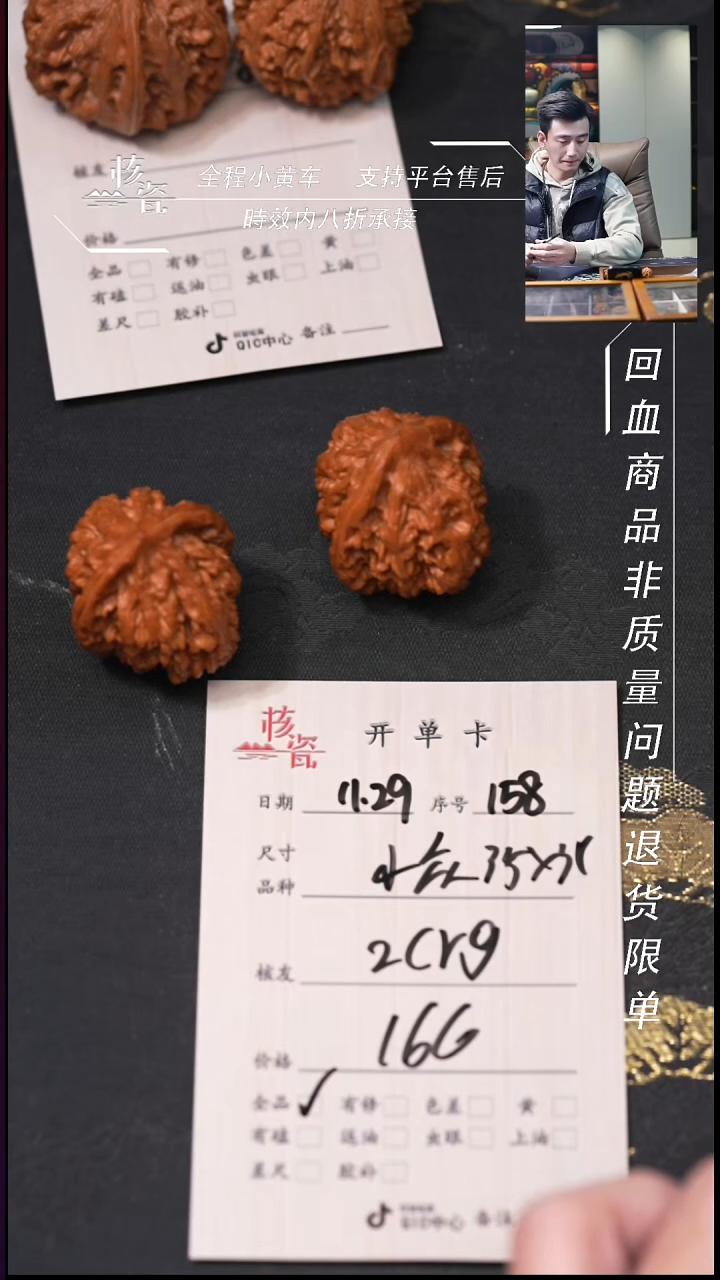 核瓷
全程小黄车 支持平台售后
時效内八折承接
核友
价格
全品 有修 色差 黄
有磕 送油 虫眼 上油
差尺 胶补
QIC中心 备注
回血商品非质量问题退货限单
核瓷
开单卡
日期 11.29 序号 158
尺寸
品种
核友 2Crg
价格 166
全品 ✓ 有修 色差 黄
有磕 送油 虫眼 上油
差尺 胶补
QIC中心 备注